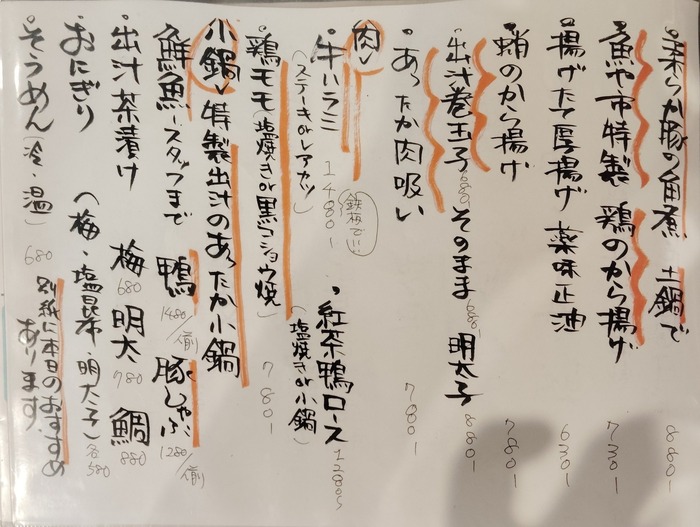 柔らか豚の角煮 土鍋で 880ｌ
魚や市特製 鶏のから揚げ 730ｌ
揚げたて厚揚げ 薬味正油 630ｌ
蛸のから揚げ 780ｌ
出汁巻玉子 680ｌ そのまま 680ｌ 明太子 880ｌ
あったか肉吸い 780ｌ
肉
牛ハラミ 1480ｌ 鉄板で!!
(ステーキorレアカツ)
紅茶鴨ロース 1280〜
(塩焼きor小鍋)
鶏モモ(塩焼きor黒コショウ焼) 780ｌ
小鍋 特製出汁のあったか小鍋
鮮魚-スタッフまで 鴨 1480/人前 豚しゃぶ 1280/人前
出汁茶漬け 梅 680 明太 780 鯛 880
おにぎり (梅・塩昆布・明太子) 各580
そうめん(冷・温) 680
別紙に本日のおすすめ
あります。